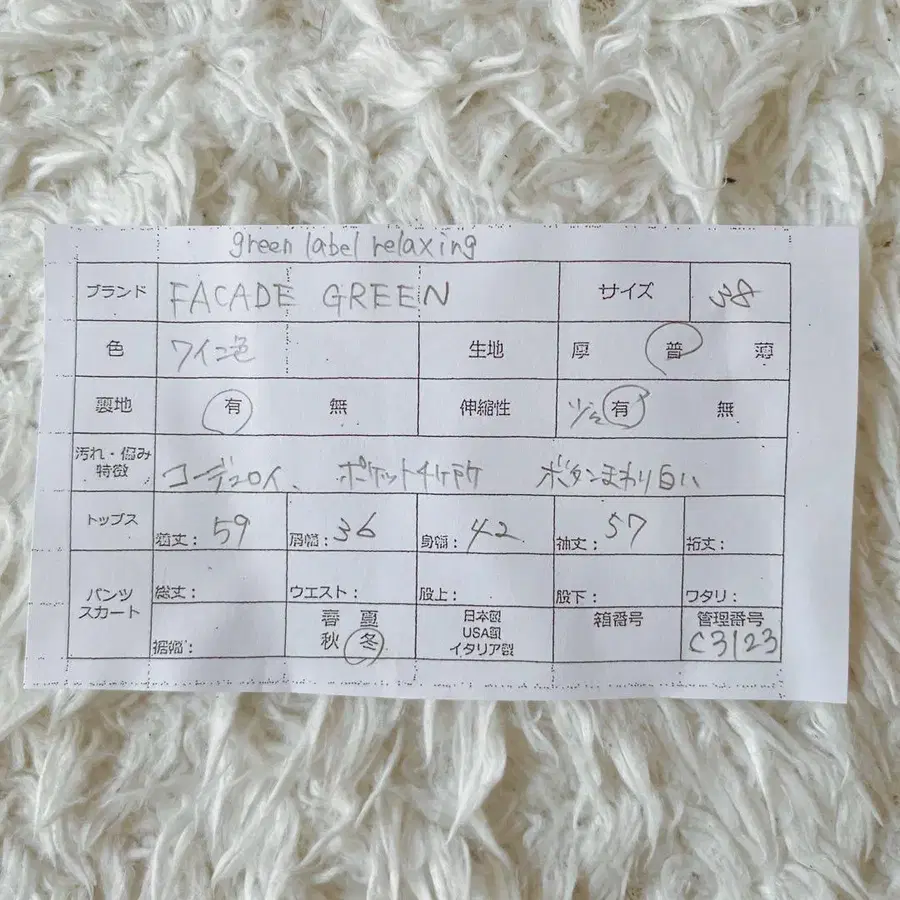 green label relaxing
ブランド FACADE GREEN サイズ 38
色 ワイン色 生地 厚 普 薄
裏地 有 無 伸縮性 少々 有 無
汚れ・傷み
特徴 コーデュロイ、 ポケット4ケ所 ボタンまわり白い
トップス 着丈: 59 肩幅: 36 身幅: 42 袖丈: 57 裄丈:
パンツ
スカート 総丈: ウエスト: 股上: 股下: ワタリ:
裾幅: 春 夏
秋 冬
日本製
USA製
イタリア製
箱番号
管理番号
C3123